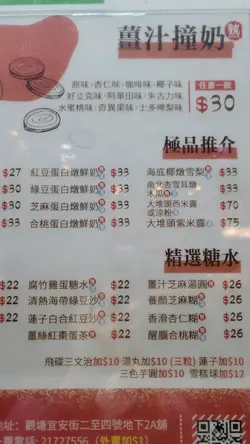 薑汁撞奶 熱
原味·杏仁味·咖啡味·椰子味
好立克味·阿華田味·朱古力味
水蜜桃味·奇異果味·士多啤梨味
任選一款
$30
極品推介
$27 紅豆蛋白燉鮮奶 $33
$30 綠豆蛋白燉鮮奶 $33
$30 芝麻蛋白燉鮮奶 $33
$33 合桃蛋白燉鮮奶 $33
海底椰燉雪梨 $33
南北杏雪耳燉木瓜 $33
大堆頭西米露或涼粉 $70
大堆頭紫米露 $75
精選糖水
$22 腐竹雞蛋糖水 $22
$22 清熱海帶綠豆沙 $22
$22 蓮子百合紅豆沙 $22
薑絲紅棗蛋茶 $22
薑汁芝麻湯圓 $26
養顏芝麻糊 $26
香滑杏仁糊 $26
醒腦合桃糊 $26
飛碟三文治加$10 湯丸加$10(三粒) 蓮子加$10
三色芋圓加$10 雪糕球加$12
地址: 觀塘宜安街二至四號地下2A舖
外賣電話: 21727556 (外賣加$1)